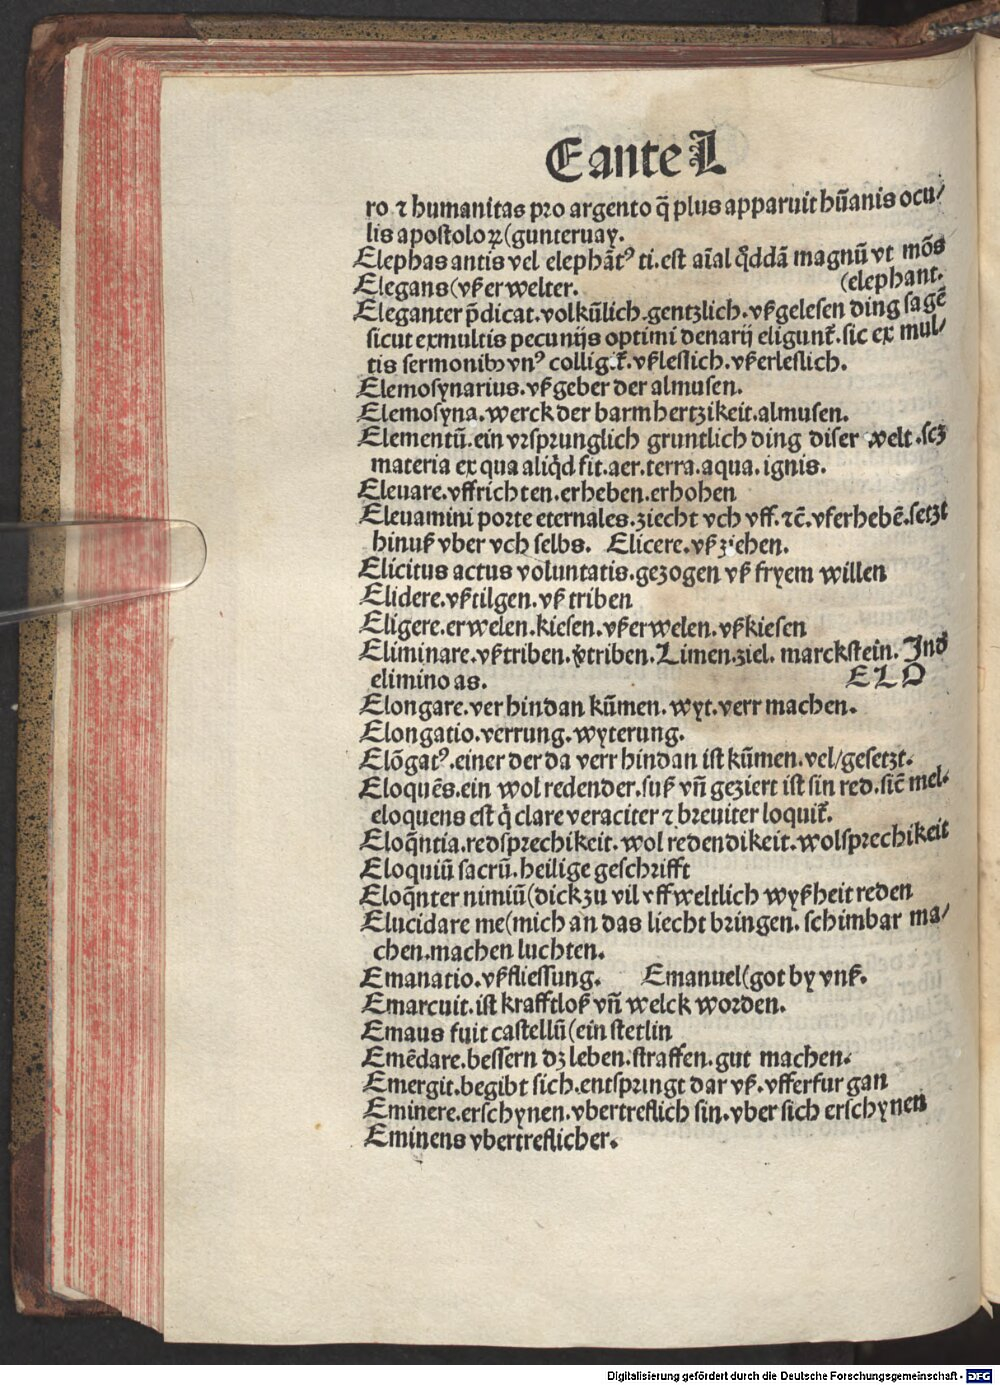 E ante L
ro ⁊ humanitas pro argento q̃ plus apparuit hũanis ocu/
lis apostoloꝝ (gunteruay.
Elephas antis vel elephãtꝰ ti. est aĩal q̊ddã magnũ vt mõs
Elegans (vß erwelter. (elephant.
Eleganter p̃dicat. volkũlich. gentzlich. vßgelesen ding sagẽ
sicut ex multis pecunijs optimi denarij eligunt̃. sic ex mul/
tis sermonibꝰ vnꝰ collig.t̃. vßleslich. vßerleslich.
Elemosynarius. vßgeber der almusen.
Elemosyna. werck der barmhertzikeit. almusen.
Elementũ. ein vrsprunglich gruntlich ding diser welt. scꝫ
materia ex qua aliq̊d fit. aer. terra. aqua. ignis.
Eleuare. vffrichten. erheben. erhohen
Eleuamini porte eternales. ziecht vch vff. ⁊c̃. vferhebẽ. setzt
hinuß vber vch selbs. Elicere. vß ziehen.
Elicitus actus voluntatis. gezogen vß fryem willen
Elidere. vßtilgen. vß triben
Eligere. erwelen. kiesen. vß erwelen. vßkiesen
Eliminare. vßtriben. v̾triben. Limen. ziel. marckstein. Jnd
elimino as. E L O
Elongare. ver hindan kũmen. wyt. verr machen.
Elongatio. verrung. wyterung.
Elõgatꝰ. einer der da verr hindan ist kũmen. vel/gesetzt.
Eloquẽs. ein wol redender. suß vñ geziert ist sin red. sic̃ mel.
eloquens est q̇ clare veraciter ⁊ breuiter loquit̃.
Eloq̃ntia. redsprechikeit. wol redendikeit. wolsprechikeit
Eloquiũ sacrũ. heilige geschrifft
Eloq̃nter nimiũ (dick zu vil vff weltlich wyßheit reden
Elucidare me (mich an das liecht bringen. schimbar ma/
chen. machen luchten.
Emanatio. vßfliessung. Emanuel (got by vnß.
Emarcuit. ist krafftloß vñ welck worden.
Emaus fuit castellũ (ein stetlin
Emẽdare. bessern dꝫ leben. straffen. gut machen.
Emergit. begibt sich. entspringt dar vß. vfferfur gan
Eminere. erschynen. vbertreflich sin. vber sich erschynen
Eminens vbertreflicher.
Digitalisierung gefördert durch die Deutsche Forschungsgemeinschaft - DFG